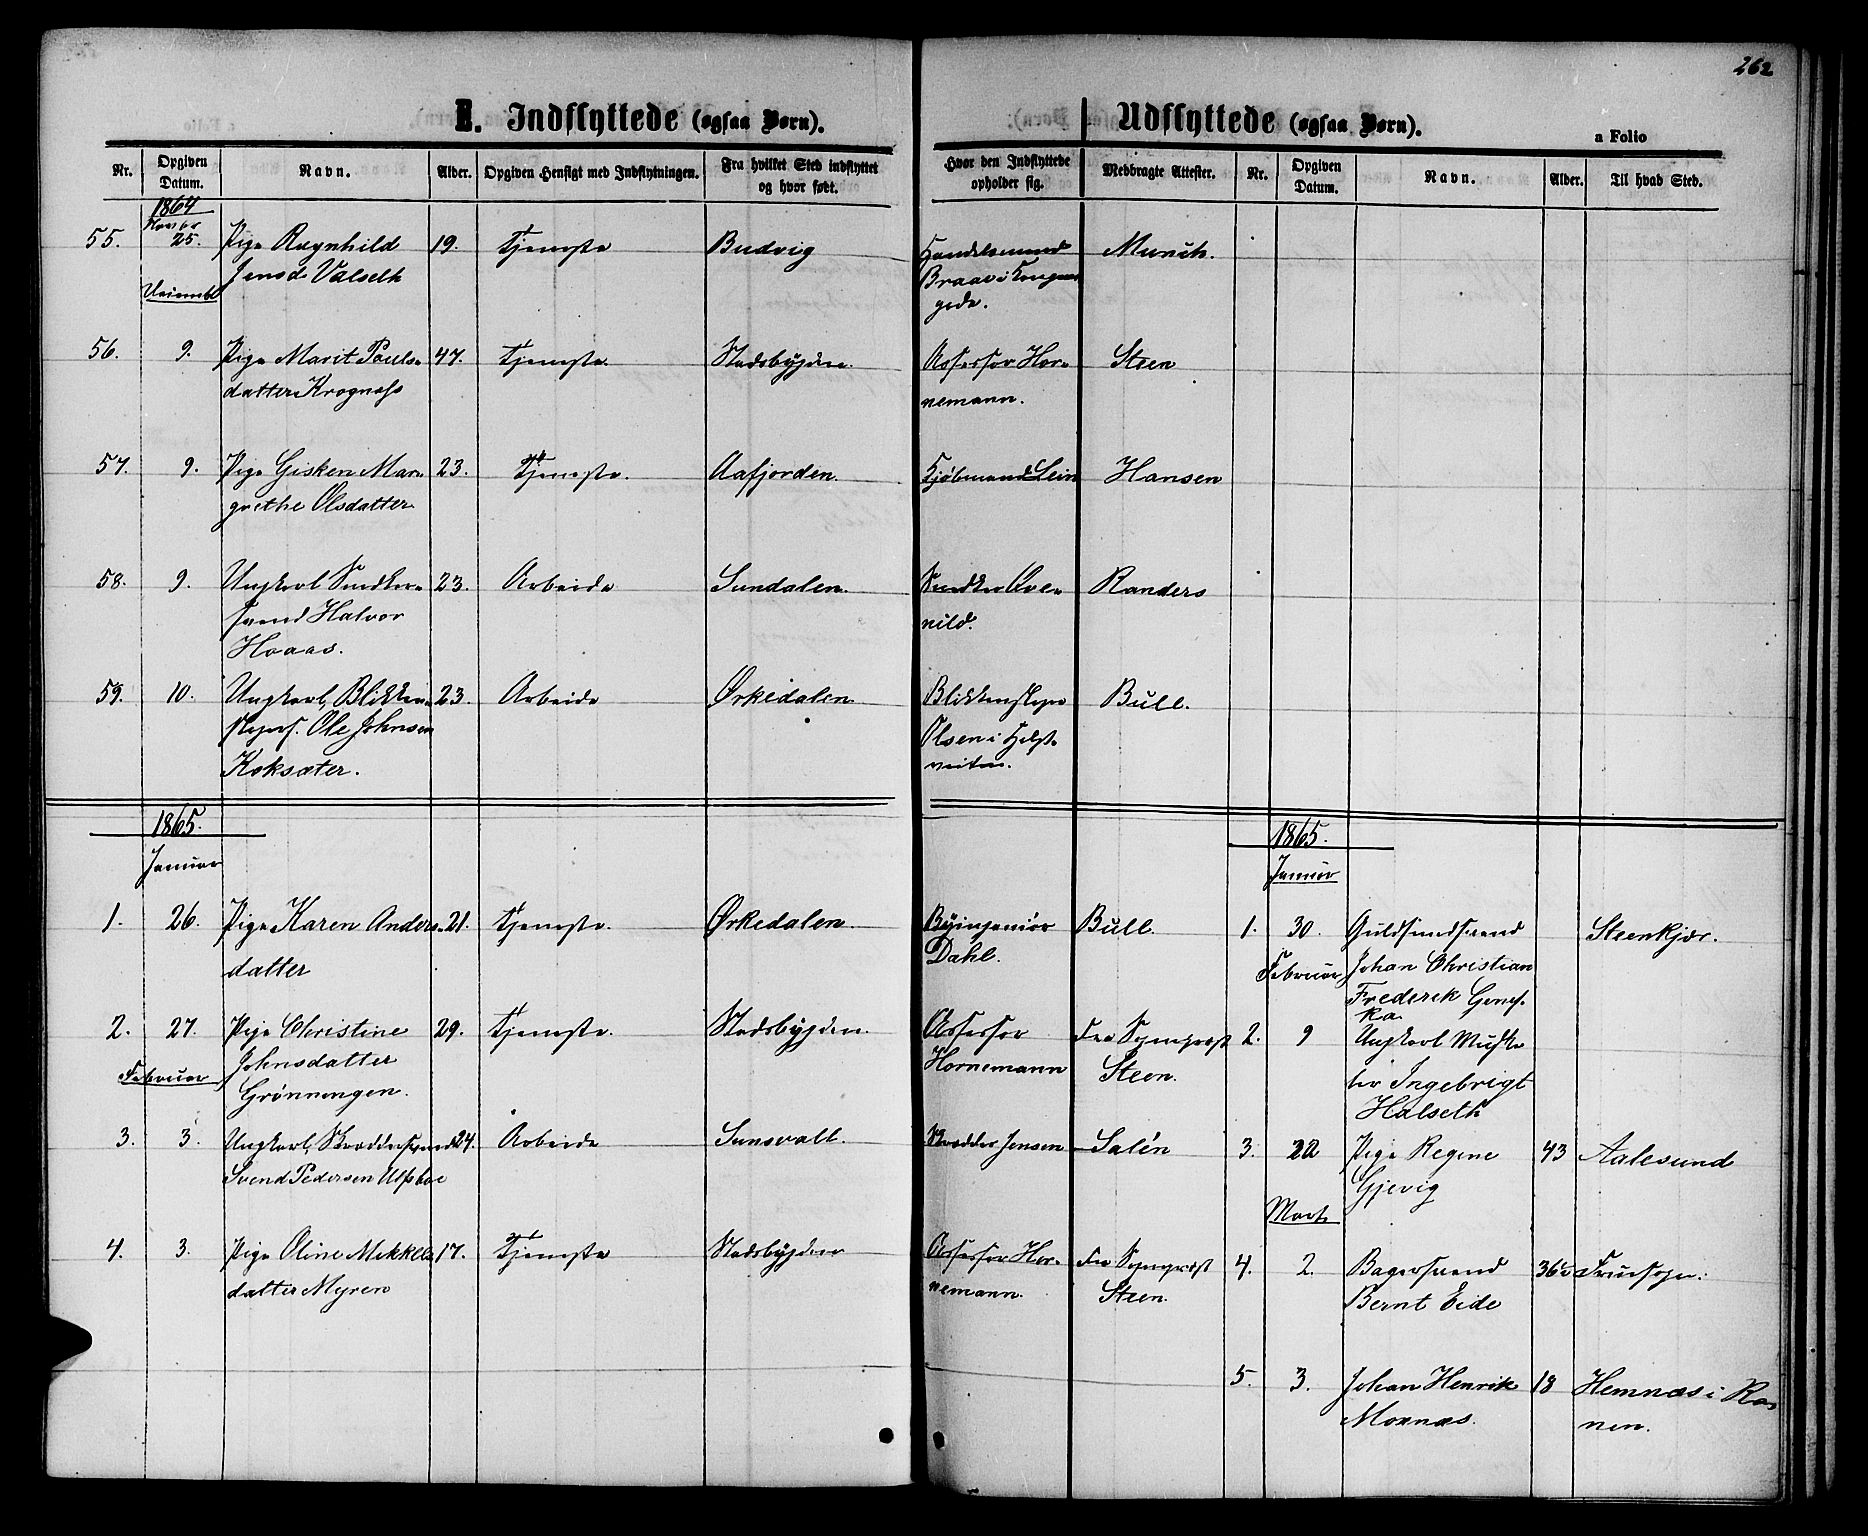 262
E. Indflyttede (ogsaa Børn).
Udflyttede (ogsaa Børn).
a Folio
Nr. Opgiven Datum. Navn. Alder. Opgiven Hensigt med Indflytningen. Fra hvilket Sted indflyttet og hvor født. Hvor den Indflyttede opholder sig. Medbragte Attester. Nr. Opgiven Datum. Navn. Alder. Til hvad Sted.
1864
Novbr
55. 25. Pige Ragnhild 19. Tjeneste Budvig Handelsmand Munch.
Jensd. Valseth Braae i Kongens
gade.
56. 9. Pige Marit Pouls- 47. Tjeneste. Stadsbygden. Assessor Hor- Steen
datter Krognæss nemann.
57. 9. Pige Gisken Mar- 23. Tjeneste. Aafjorden. Kjøbmand Lein Hansen
grethe Olsdatter
58. 9. Ungkarl Snedker- 23. Arbeide Sundalen. Snedker Randers
svend Halvor nild.
Hoaas.
59. 10. Ungkarl, Blikken- 23. Arbeide Ørkedalen Blikkenslager Bull.
slagers. Ole Johnsen Olsen i
Koksæter.
1865. 1865.
Januar Januar
1. 26. Pige Karen Anders- 21. Tjeneste. Ørkedalen Byingeniør Bull. 1. 30. Guldsmedsvend Steenkjær.
datter Dahl. Februar Johan Christian
Frederik
2. 27. Pige Christine 29. Tjeneste. Stadsbygden. Assessor Fra Sognepræst 2. 9 Ungkarl
Februar Johnsdatter Hornemann Steen. Ingebrigt
Grønningen. Halseth
3. 3. Ungkarl, Skræddersvend 24. Arbeide Sunsvall. Skrædder Jensen Salén 3. 22 Pige Regine 43 Aalesund
Svend Pedersen Gjevig
Marts
4. 3. Pige Oline Mikkels- 17. Tjeneste Stadsbygden Assessor Hor- Fra Sognepræst 4. 2. Bagersvend 36 Fruesogn.
datter Myren nemann. Steen. Bernt Eide
5. 3. Johan Henrik 18 Hemnæs i Ra-
Moxnæs. nen.